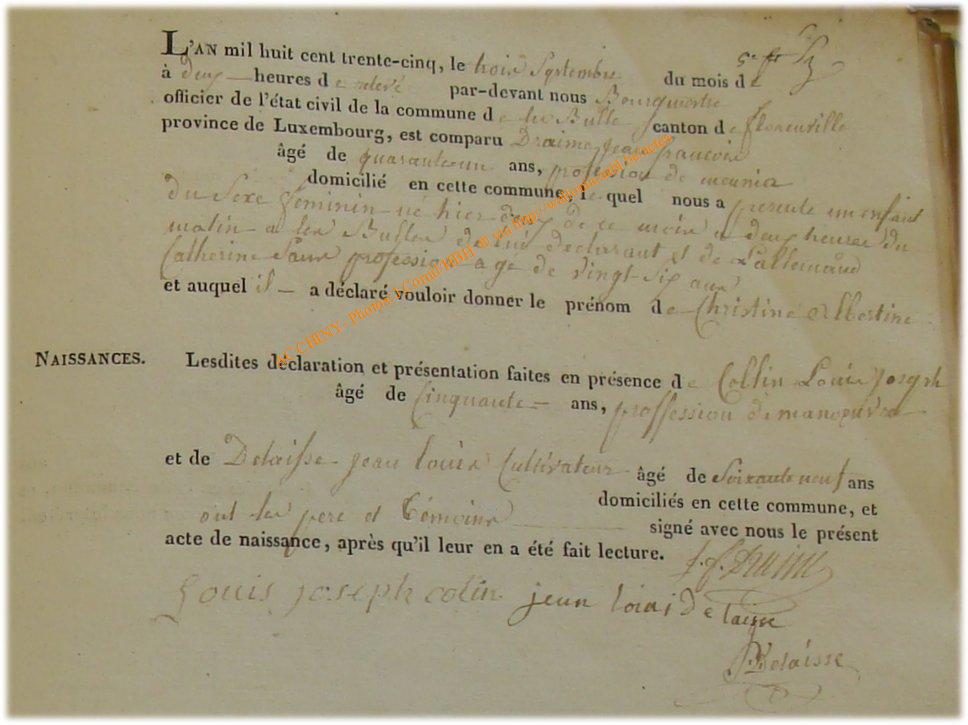 L'AN mil huit cent trente-cinq, le trois Septembre du mois de
à deux heures de relevé par-devant nous Bourguestre
officier de l'état civil de la commune de les Bulle canton de florenville
province de Luxembourg, est comparu Draime jean francois
âgé de quarante un ans, profession de meunier
domicilié en cette commune, le quel nous a presente un enfant
du Sexe féminin né hier deux de ce mois a deux heures du
matin a les Bulles de lui déclarant et de Lallemand
Catherine Sans profession agé de vingt-six ans
et auquel il a déclaré vouloir donner le prénom de Christine Albertine
NAISSANCES. Lesdites déclaration et présentation faites en présence de Collin Louis Joseph
âgé de Cinquante ans, proffession de manoeuvre
et de Delaisse jean louis Cultivateur âgé de Soixante neuf ans
domiciliés en cette commune, et
ont les pere et témoins signé avec nous le présent
acte de naissance, après qu'il leur en a été fait lecture. J. f. Draime
Louis joseph colin jean louis de laisse
Delaisse